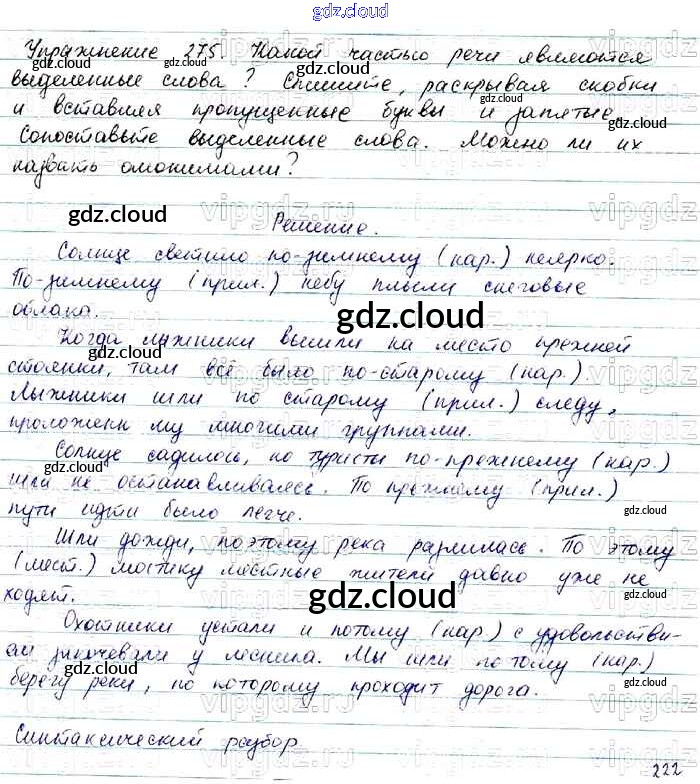 gdz.cloud
Упражнение 275. Какой частью речи являются
выделенные слова? Спишите, раскрывая скобки
и вставляя пропущенные буквы и запятые.
Сопоставьте выделенные слова. Можно ли их
назвать омонимами?
Решение.
Солнце светило по-зимнему (нар.) неярко.
По-зимнему (прил.) небу плыли снеговые
облака.
Когда лыжники вышли на место прежней
стоянки, там всё было по-старому (нар.).
Лыжники шли по старому (прил.) следу,
проложенн му многими группами.
Солнце садилось, но туристы по-прежнему (нар.)
шли не останавливаясь. По прежнему (прил.)
пути идти было легче.
Шли дожди, поэтому река разлилась. По этому
(мест.) мостику местные жители давно уже не
ходят.
Охотники устали и потому (нар.) с удовольстви-
ем заночевали у лесника. Мы шли по тому (нар.)
берегу реки, по которому проходит дорога.
Синтаксический разбор
222